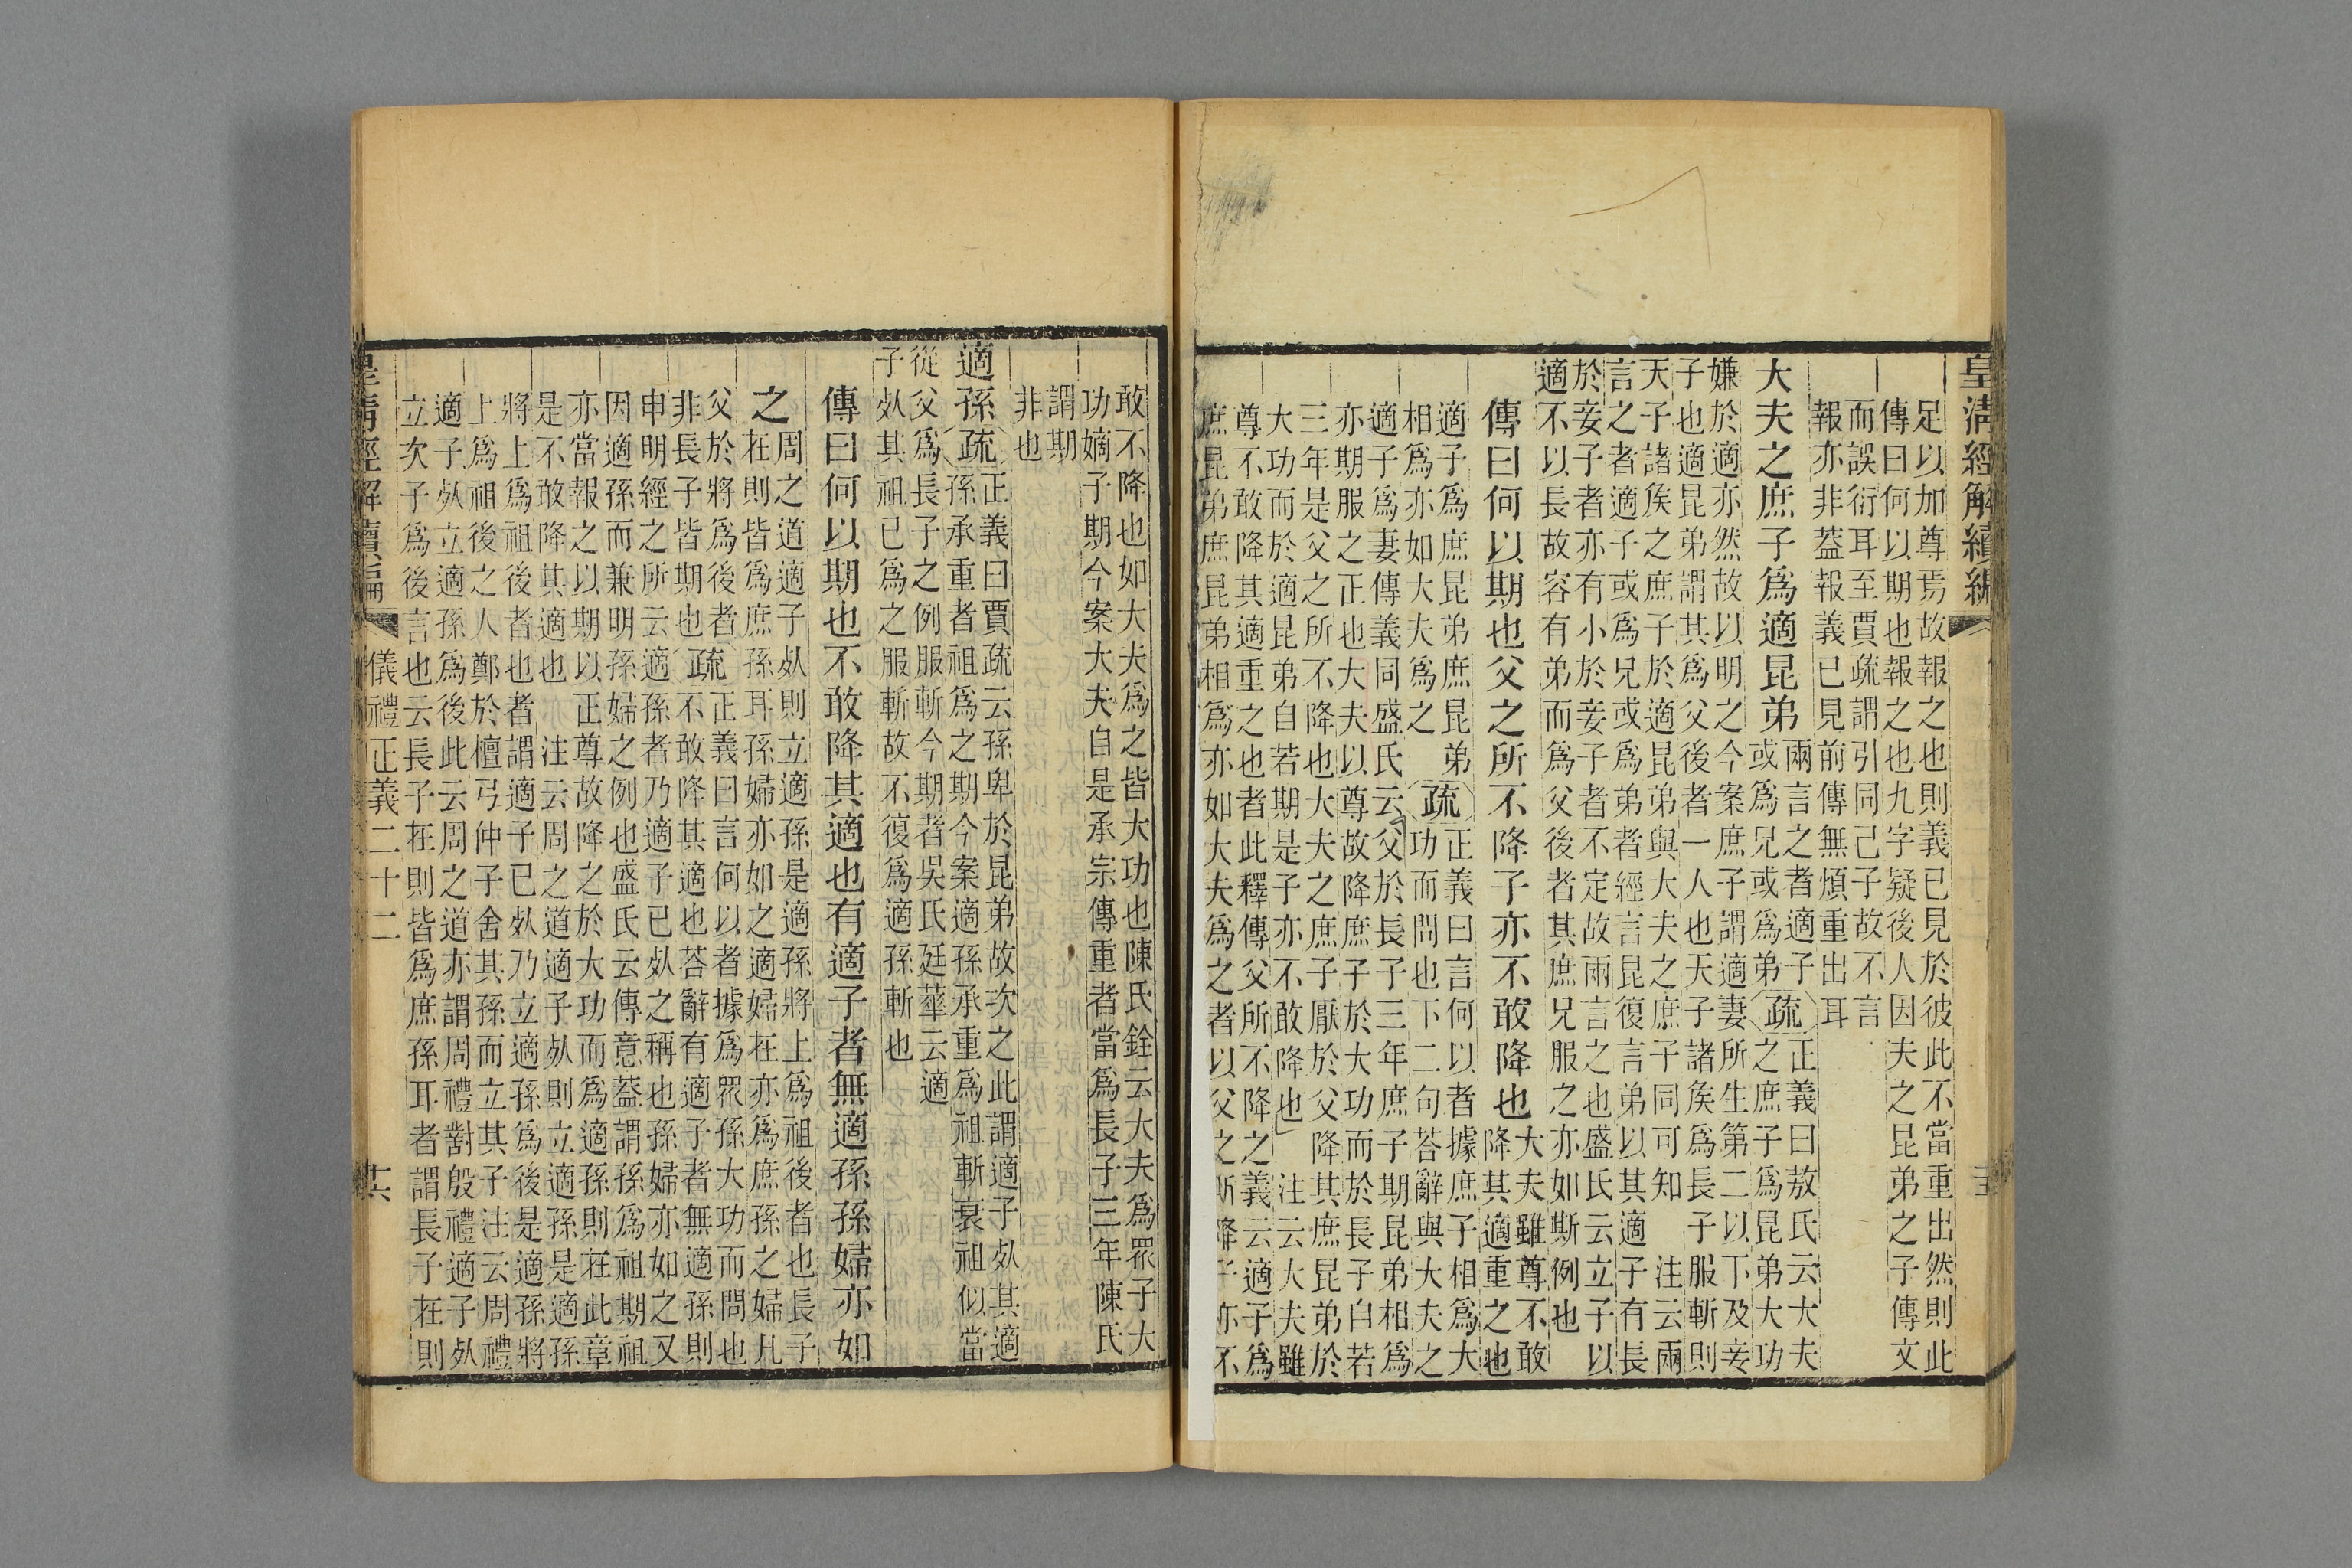 皇清經解續編
足以加尊焉故報之也則義已見於彼此不當重出然則此
傳曰何以期也報之也九字疑後人因夫之昆弟之子傳文
而誤衍耳至賈疏謂引同己子故不言
報亦非葢報義已見前傳無煩重出耳
大夫之庶子爲適昆弟
兩言之者適子
或爲兄或爲弟
疏
正義曰敖氏云大夫
之庶子爲昆弟大功
嫌於適亦然故以明之今案庶子謂適妻所生第二以下及妾
子也適昆弟謂其爲父後者一人也天子諸矦爲長子服斬則
天子諸矦之庶子於適昆弟與大夫之庶子同可知 注云兩
言之者適子或爲兄或爲弟者經言昆復言弟以其適子有長
於妾子者亦有小於妾子者不定故兩言之也盛氏云立子以
適不以長故容有弟而爲父後者其庶兄服之亦如斯例也
傳曰何以期也父之所不降子亦不敢降也
大夫雖尊不敢
降其適重之也
適子爲庶昆弟庶昆弟
相爲亦如大夫爲之
疏
正義曰言何以者據庶子相爲大
功而問也下二句荅辭與大夫之
適子爲妻傳義同盛氏云父於長子三年庶子期昆弟相爲
亦期服之正也大夫以尊故降庶子於大功而於長子自若
三年是父之所不降也大夫之庶子厭於父降其庶昆弟於
大功而於適昆弟自若期是子亦不敢降也 注云大夫雖
尊不敢降其適重之也者此釋傳父所不降之義云適子爲
庶昆弟庶昆弟相爲亦如大夫爲之者以父之所降子亦不
敢不降也如大夫爲之皆大功也陳氏銓云大夫爲眾子大
功嫡子期今案大夫自是承宗傳重者當爲長子三年陳氏
謂期
非也
適孫
疏
正義曰賈疏云孫卑於昆弟故次之此謂適子𣦸其適
孫承重者祖爲之期今案適孫承重爲祖斬衰祖似當
從父爲長子之例服斬今期者吳氏廷華云適
子𣦸其祖已爲之服斬故不復爲適孫斬也
傳曰何以期也不敢降其適也有適子者無適孫孫婦亦如
之
周之道適子𣦸則立適孫是適孫將上爲祖後者也長子
在則皆爲庶孫耳孫婦亦如之適婦在亦爲庶孫之婦凡
父於將爲後者
非長子皆期也
疏
正義曰言何以者據爲眾孫大功而問也
不敢降其適也荅辭有適子者無適孫則
申明經之所云適孫者乃適子已𣦸之稱也孫婦亦如之又
因適孫而兼明孫婦之例也盛氏云傳意葢謂孫爲祖期祖
亦當報之以期以正尊故降之於大功而爲適孫則在此章
是不敢降其適也 注云周之道適子𣦸則立適孫是適孫
將上爲祖後者也者謂適子已𣦸乃立適孫爲後是適孫將
上爲祖後之人鄭於檀弓仲子舍其孫而立其子注云周禮
適子𣦸立適孫爲後此云周之道亦謂周禮對殷禮適子𣦸
立次子爲後言也云長子在則皆爲庶孫耳者謂長子在則
皇清經解續編
儀禮正義二十二